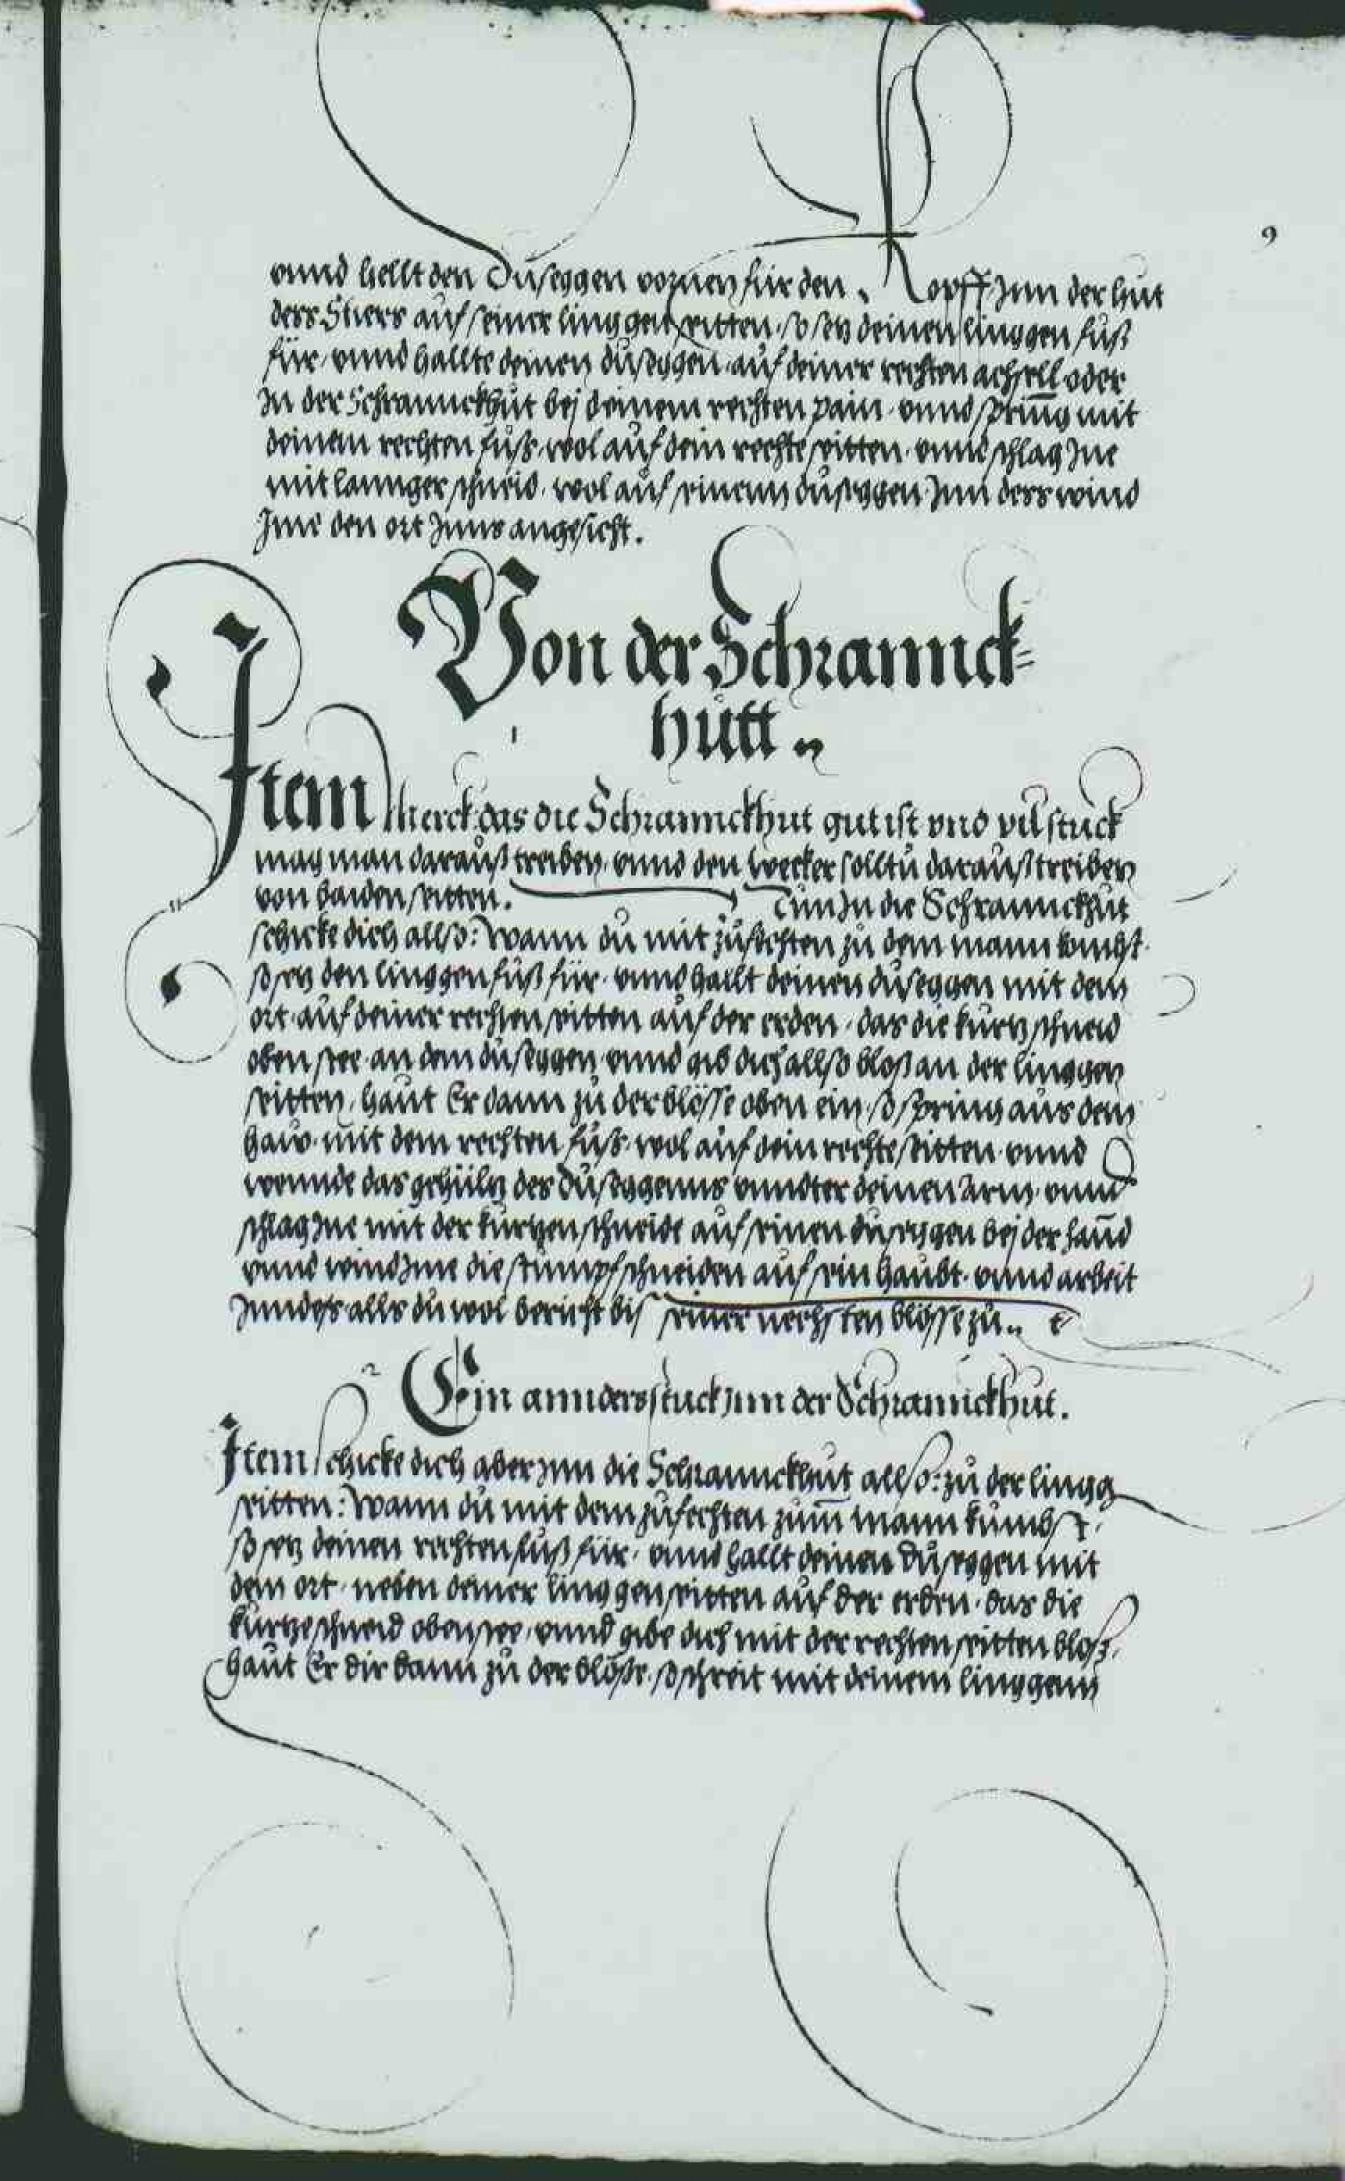 9
vnnd hellt den Duseggen vornen für den Kopff Jnn der hut
derr Stiers auf seiner linggen seitten, so setz deinen linggen fuß
für, vnnd hallte deinen duseggen auf deiner rechten achsell oder
Jn der Schrannckhut bej deinem rechten pain, vnnd spring mit
deinem rechten fuß wol auf dein rechte seitten, vnnd schlag Jne
mit lannger schneid, wol auf seinenn duseggen Jnn dess wind
Jme den ort Jnns angesicht.
Von der Schrannck-
hutt
Jtem Merck das die Schrannckhut gut ist vnd vil stuck
mag man darauß treiben, vnnd den wecker solltu darauß treiben
von baiden seitten. Cum Jn die Schrannckhut
schicke dich allso: Wann du mit zufechten zu dem mann kumbst.
so setz den linggen fuß für, vnnd hallt deinen duseggen mit dem
ort auf deiner rechten seitten auf der erden, das die kurtz schneid
oben stee an dem duseggen, vnnd gib dich allso bloß an der linggen
seitten, haut Er dann zu der blösse oben ein, so spring aus dem
haw mit dem rechten fuß wol auf dein rechte seitten, vnnd
wennde das gehiiltz des Duseggenns vnndter deinen Arm, vnnd
schlag Jne mit der kurtzen schneide auf seinen duseggen bej der hannd
vnnd wind Jme die stumpf schneiden auf sein haubt, vnnd arbeit
Jnndess alls du wol bericht bis seiner nechsten blösse zu
Ein annders stuck Jnn der Schrannckhut.
Jtem schicke dich aber Jnn die Schrannckhut allso: zu der lingg
seitten: Wann du mit dem zufechten zum mann kumbst,
so setz deinen rechten fuß für, vnnd hallt deinen Duseggen mit
dem ort, neben deiner linggen seitten auf der erden, das die
kurtze schneid oben stee, vnnd gibe dich mit der rechten seitten bloß,
haut Er dir dann zu der blösse, so schreit mit deinem linggenn